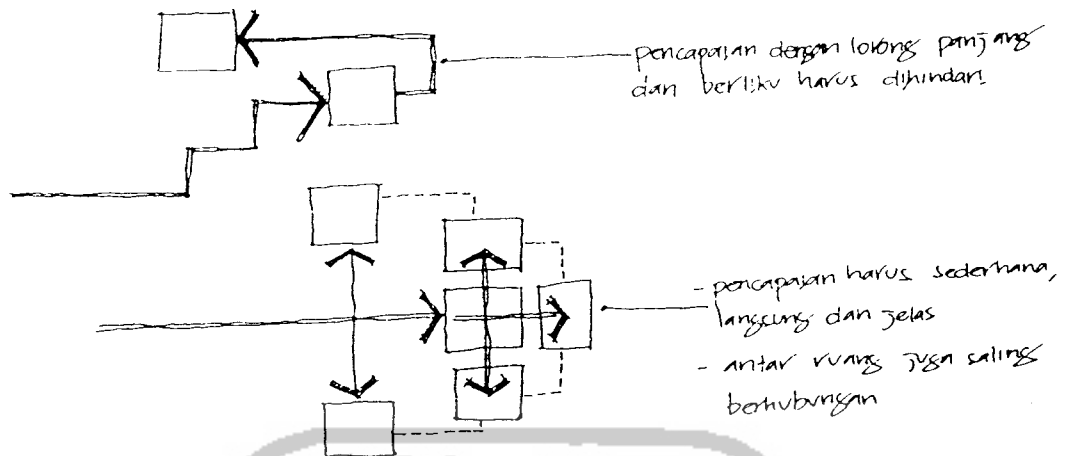 pencapaian dengan lorong panjang
dan berliku harus dihindari
- pencapaian harus sederhana,
langsung dan jelas
- antar ruang juga saling
berhubungan